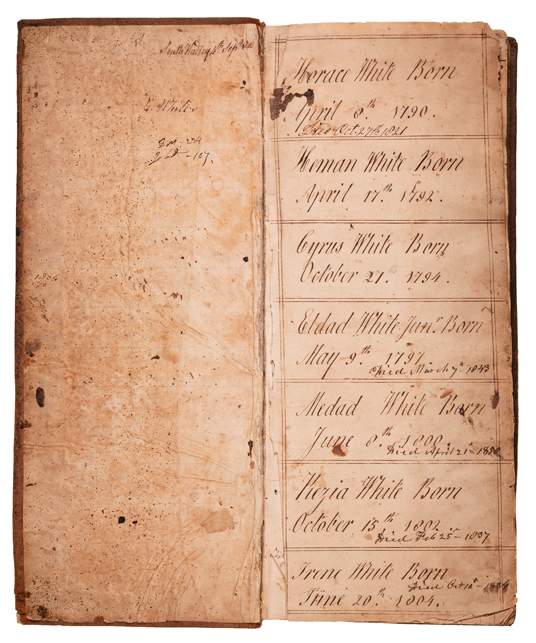 E. White
Horace White Born
April 8th 1790.
Died Oct. 27th 1821
Heman White Born
April 17th 1792.
Cyrus White Born
October 27. 1794.
Eldad White Junr Born
May 9th 1797
Died March 7th 1843
Medad White Born
June 8th 1800.
Died April 21st
Kezia White Born
October 15th 1802
Died Feb 25th 1837
Irene White Born
Died Oct
June 20th 1804.